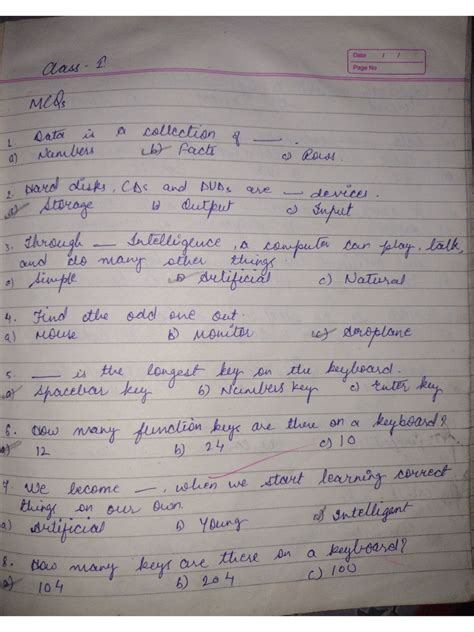 Date / /
Page No
Class - I
MCQs
1. Data is a collection of ___ .
a) Numbers b) Facts c) Rows.
2. Hard disks, CDs and DVDs are ___ devices.
a) Storage b) Output c) Input
3. Through ___ Intelligence, a computer can play, talk,
and do many other things.
a) Simple b) Artificial c) Natural
4. Find the odd one out.
a) Mouse b) Monitor c) Aeroplane
5. ___ is the longest key on the keyboard.
a) Spacebar key b) Numbers key c) Enter key
6. How many function keys are there on a keyboard?
a) 12 b) 24 c) 10
7. We become ___, when we start learning correct
things on our own.
a) Artificial b) Young c) Intelligent
8. How many keys are there on a keyboard?
a) 104 b) 204 c) 100